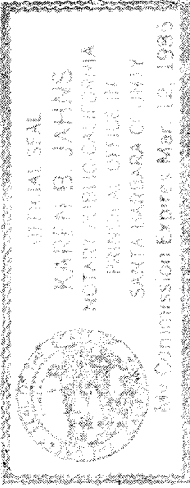 OFFICIAL SEAL
KAREN B JAHNS
NOTARY PUBLIC-CALIFORNIA
PRINCIPAL OFFICE IN
SANTA BARBARA COUNTY
My Commission Expires Mar. 12, 1983